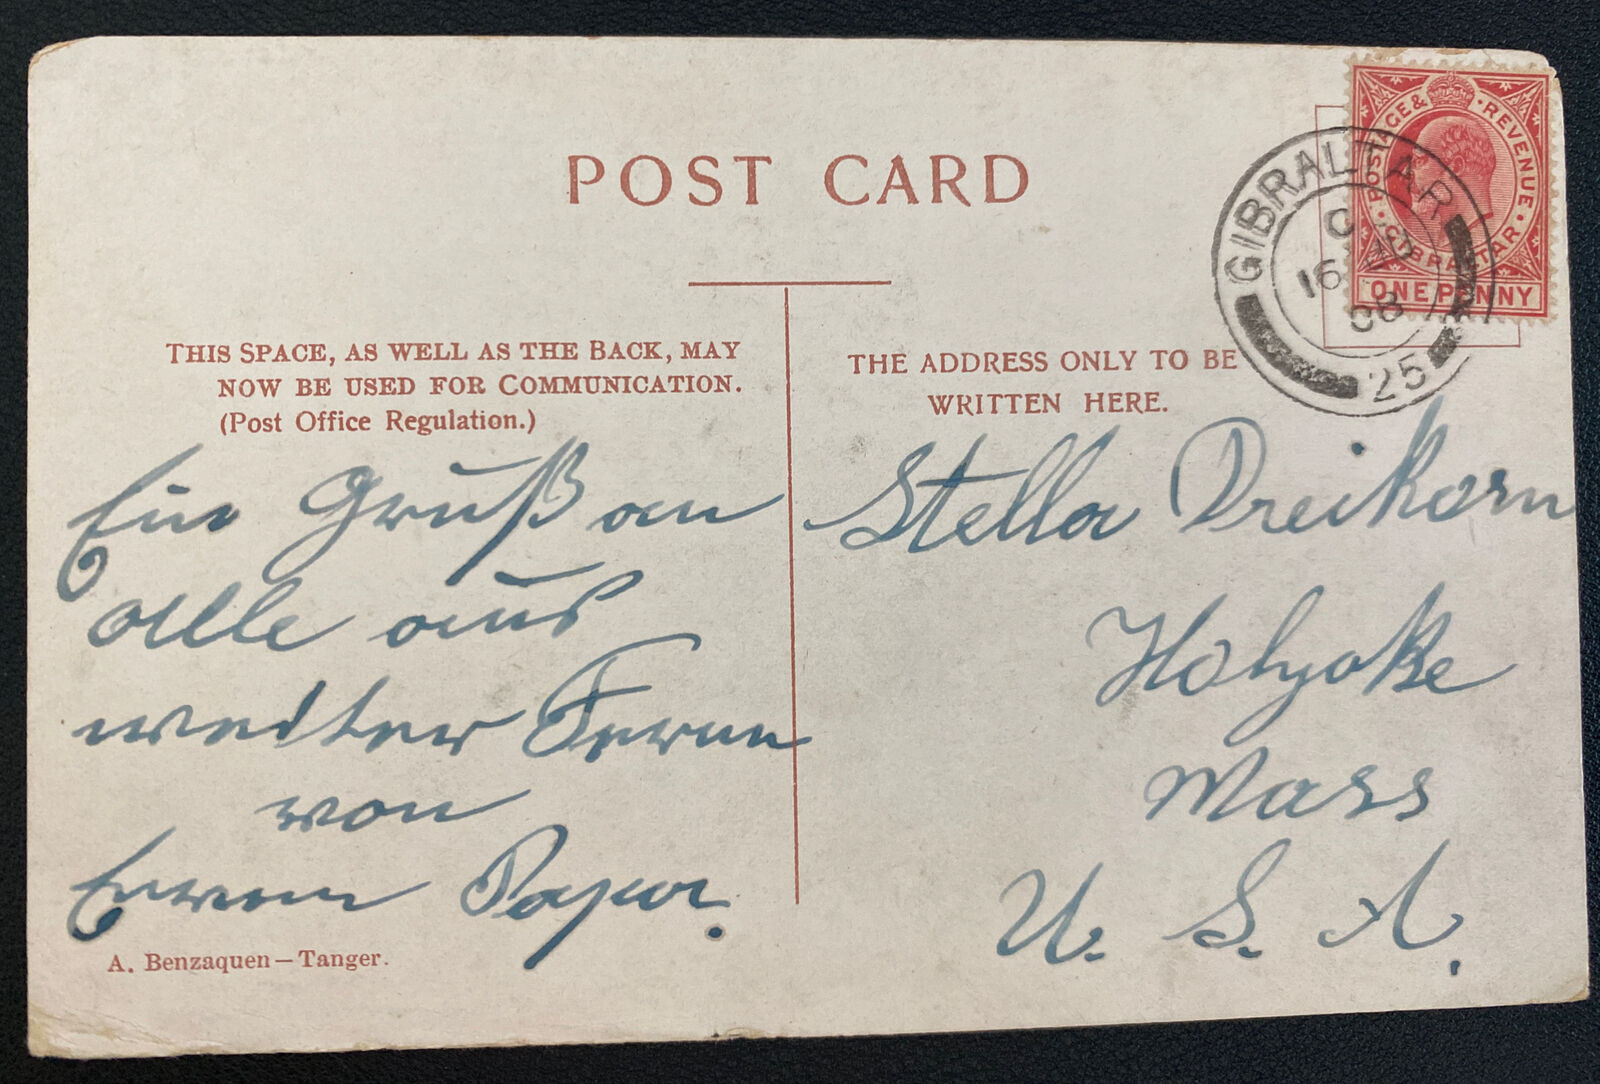 POST CARD
THIS SPACE, AS WELL AS THE BACK, MAY
NOW BE USED FOR COMMUNICATION.
(Post Office Regulation.)
THE ADDRESS ONLY TO BE
WRITTEN HERE.
POSTAGE & REVENUE
GIBRALTAR
ONE PENNY
GIBRALTAR
16
08
25
Ein Gruß an
Alle aus
weiter Ferne
von
Eurem Papa.
Stella Dreikorn
Holyoke
Mass
U. S. A.
A. Benzaquen — Tanger.